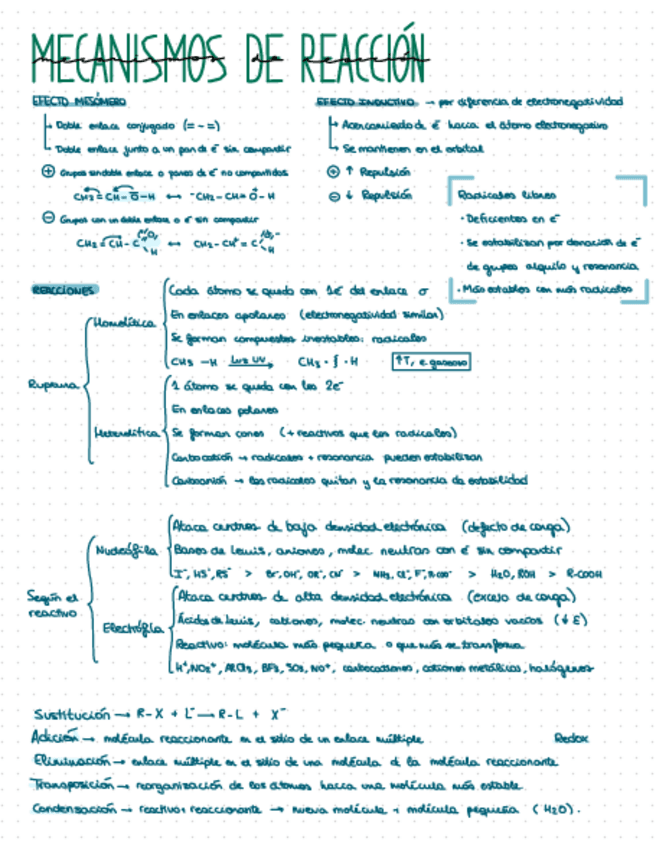 MECANISMOS DE REACCIÓN
EFECTO MESÓMERO
Doble enlace conjugado (= - =)
Doble enlace junto a un par de e⁻ sin compartir
⊕ Grupos sin doble enlace o pares de e⁻ no compartidos
CH₂ = CH - O - H ↔ ⁻CH₂ - CH = O - H
⊖ Grupos con un doble enlace o e⁻ sin compartir
CH₂ = CH - C H ↔ CH₂ - CH⁺ = C H
EFECTO INDUCTIVO → por diferencia de electronegatividad
Acercamiento de e⁻ hacia el átomo electronegativo
Se mantienen en el orbital
⊕ ↑ Repulsión
⊖ ↓ Repulsión
Radicales libres
· Deficientes en e⁻
· Se estabilizan por donación de e⁻
de grupos alquilo y resonancia
· Más estables con más radicales
REACCIONES
Ruptura
Homolítica
Cada átomo se queda con 1e⁻ del enlace σ
En enlaces apolares (electronegatividad similar)
Se forman compuestos inestables: radicales
CH₃ - H Luz UV → CH₃ · } · H ↑T, e. gaseoso
Heterolítica
1 átomo se queda con los 2e⁻
En enlaces polares
Se forman iones (+ reactivos que los radicales)
Carbocatión → radicales + resonancia pueden estabilizar
Carbanión → los radicales quitan y la resonancia da estabilidad
Según el
reactivo
Nucleófila
Ataca centros de baja densidad electrónica (defecto de carga)
Bases de Lewis, aniones, molec neutras con e⁻ sin compartir
I⁻, HS⁻, RS⁻ > Br⁻, OH⁻, OR⁻, CN⁻ > NH₃, Cl⁻, F⁻, RCOO⁻ > H₂O, ROH > R-COOH
Electrófila
Ataca centros de alta densidad electrónica (exceso de carga)
Ácidos de Lewis, cationes, molec. neutras con orbitales vacíos (↓ E)
Reactivo: molécula más pequeña o que más se transforma
H⁺, NO₂⁺, AlCl₃, BF₃, SO₃, NO⁺, carbocationes, cationes metálicos, halógenos
Sustitución → R-X + L⁻ → R-L + X⁻
Adición → molécula reaccionante en el sitio de un enlace múltiple Redox
Eliminación → enlace múltiple en el sitio de una molécula d la molécula reaccionante
Transposición → reorganización de los átomos hacia una molécula más estable
Condensación → reactivo + reaccionante → nueva molécula + molécula pequeña (H₂O).